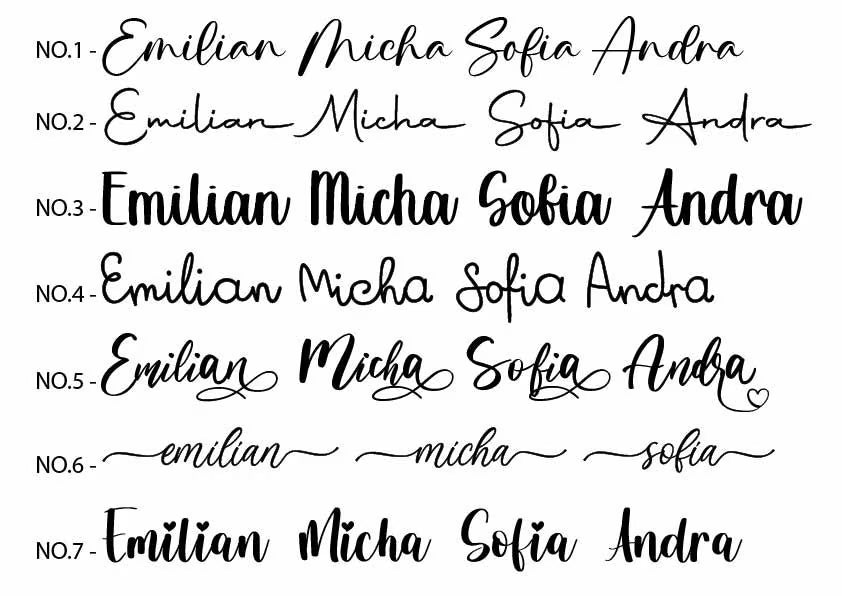 NO.1 - Emilian Micha Sofia Andra
NO.2 - Emilian Micha Sofia Andra
NO.3 - Emilian Micha Sofia Andra
NO.4 - Emilian Micha Sofia Andra
NO.5 - Emilian Micha Sofia Andra
NO.6 - emilian micha sofia
NO.7 - Emilian Micha Sofia Andra